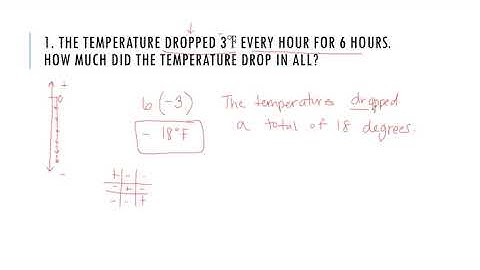 1. THE TEMPERATURE DROPPED 3°F EVERY HOUR FOR 6 HOURS.
HOW MUCH DID THE TEMPERATURE DROP IN ALL?
+
0
-
6 (-3)
- 18°F
The temperatures dropped
a total of 18 degrees.
+ - -
- + -
- - +